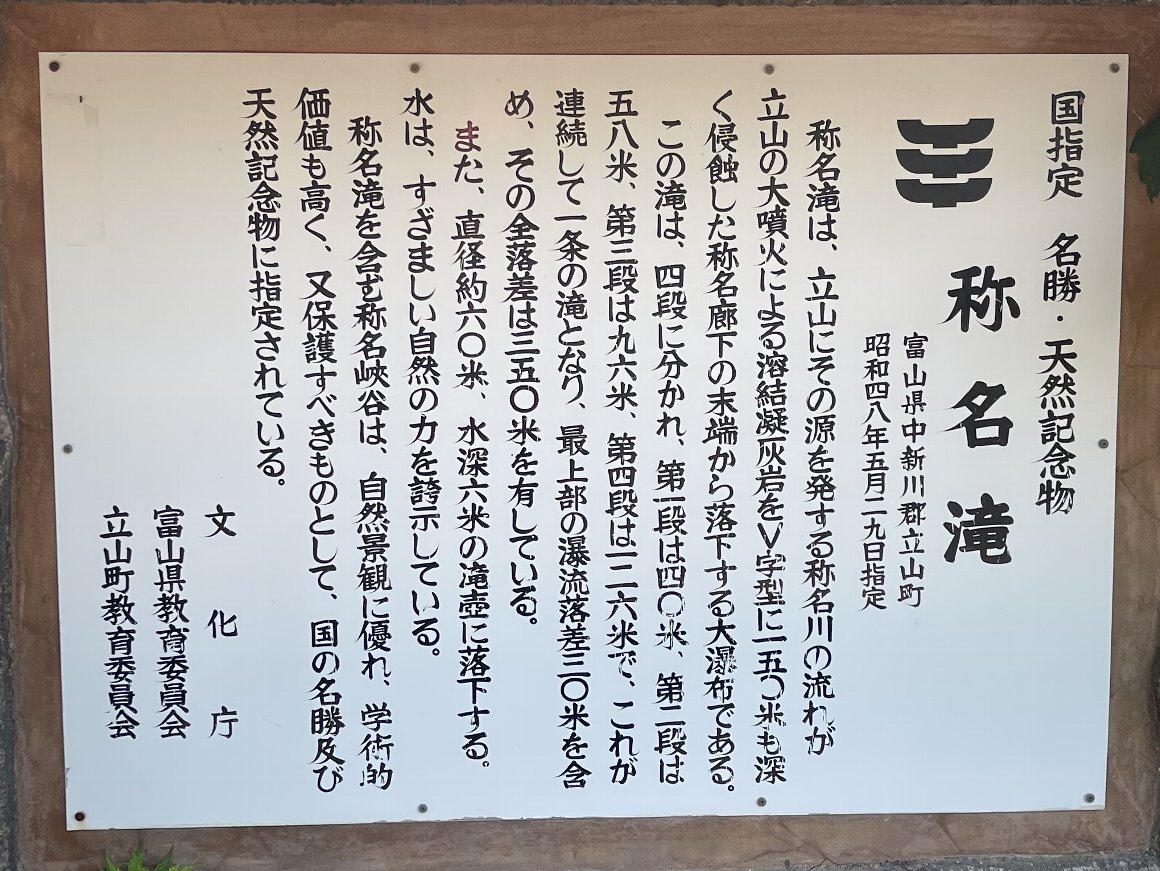 国指定 名勝・天然記念物
称名滝
富山県中新川郡立山町
昭和四八年五月二九日指定
称名滝は、立山にその源を発する称名川の流れが
立山の大噴火による溶結凝灰岩をV字型に一五〇米も深
く侵蝕した称名廊下の末端から落下する大瀑布である。
この滝は、四段に分かれ、第一段は四〇米、第二段は
五八米、第三段は九六米、第四段は一二六米で、これが
連続して一条の滝となり、最上部の瀑流落差三〇米を含
め、その全落差は三五〇米を有している。
また、直径約六〇米、水深六米の滝壺に落下する。
水は、すざましい自然の力を誇示している。
称名滝を含む称名峡谷は、自然景観に優れ、学術的
価値も高く、又保護すべきものとして、国の名勝及び
天然記念物に指定されている。
文化庁
富山県教育委員会
立山町教育委員会